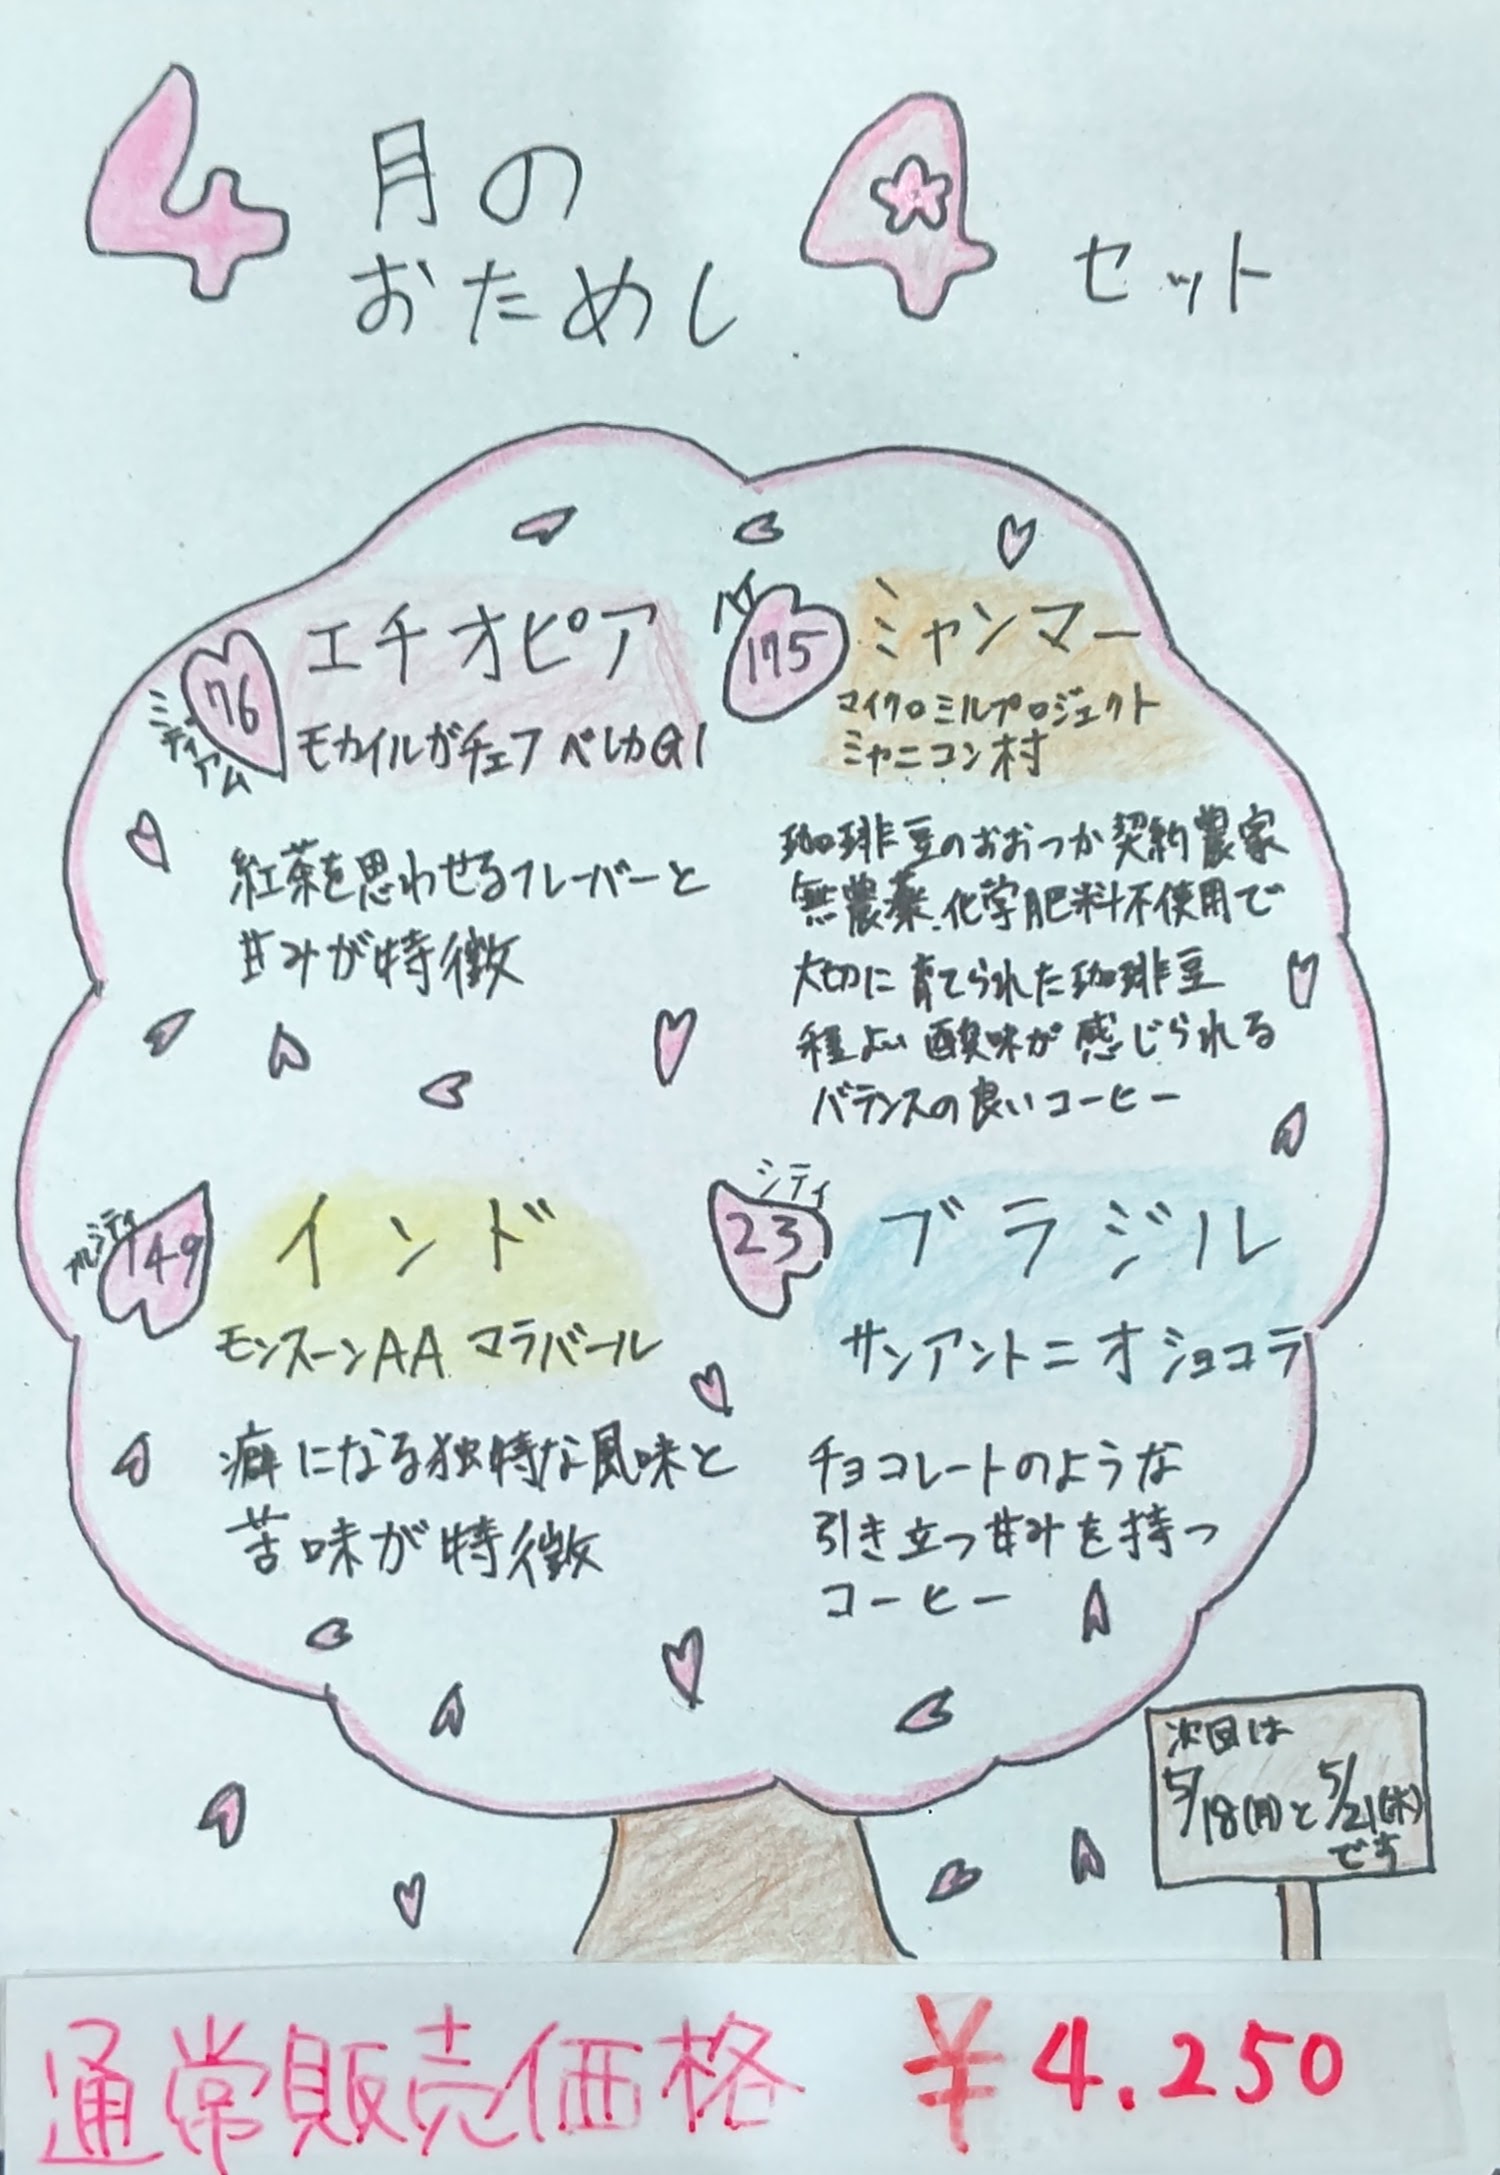 4月の
おためし4セット
ミディアム
76
エチオピア
モカイルガチェフ ベレカG1
紅茶を思わせるフレーバーと
甘みが特徴
ハイ
175
ミャンマー
マイクロミルプロジェクト
ミャニコン村
珈琲豆のおおつか契約農家
無農薬、化学肥料不使用で
大切に育てられた珈琲豆
程よい酸味が感じられる
バランスの良いコーヒー
フルシティ
149
インド
モンスーンAA マラバール
癖になる独特な風味と
苦味が特徴
シティ
23
ブラジル
サンアントニオショコラ
チョコレートのような
引き立つ甘みを持つ
コーヒー
次回は
5/18(月)と5/21(木)
です
通常販売価格 ¥4.250